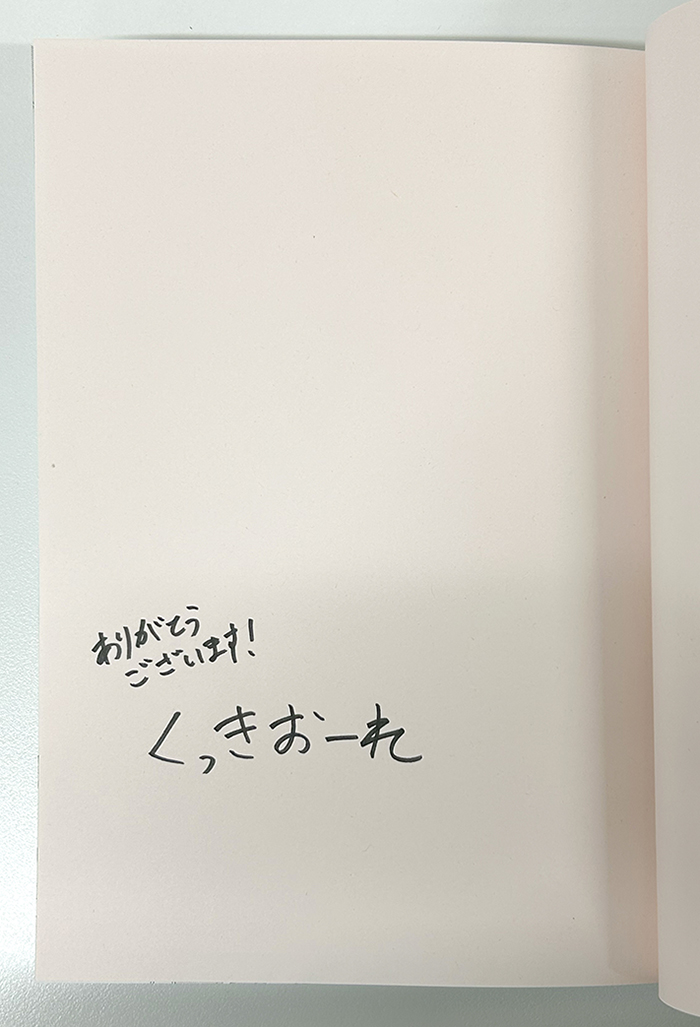 ありがとう
ございます!
くっきおーれ